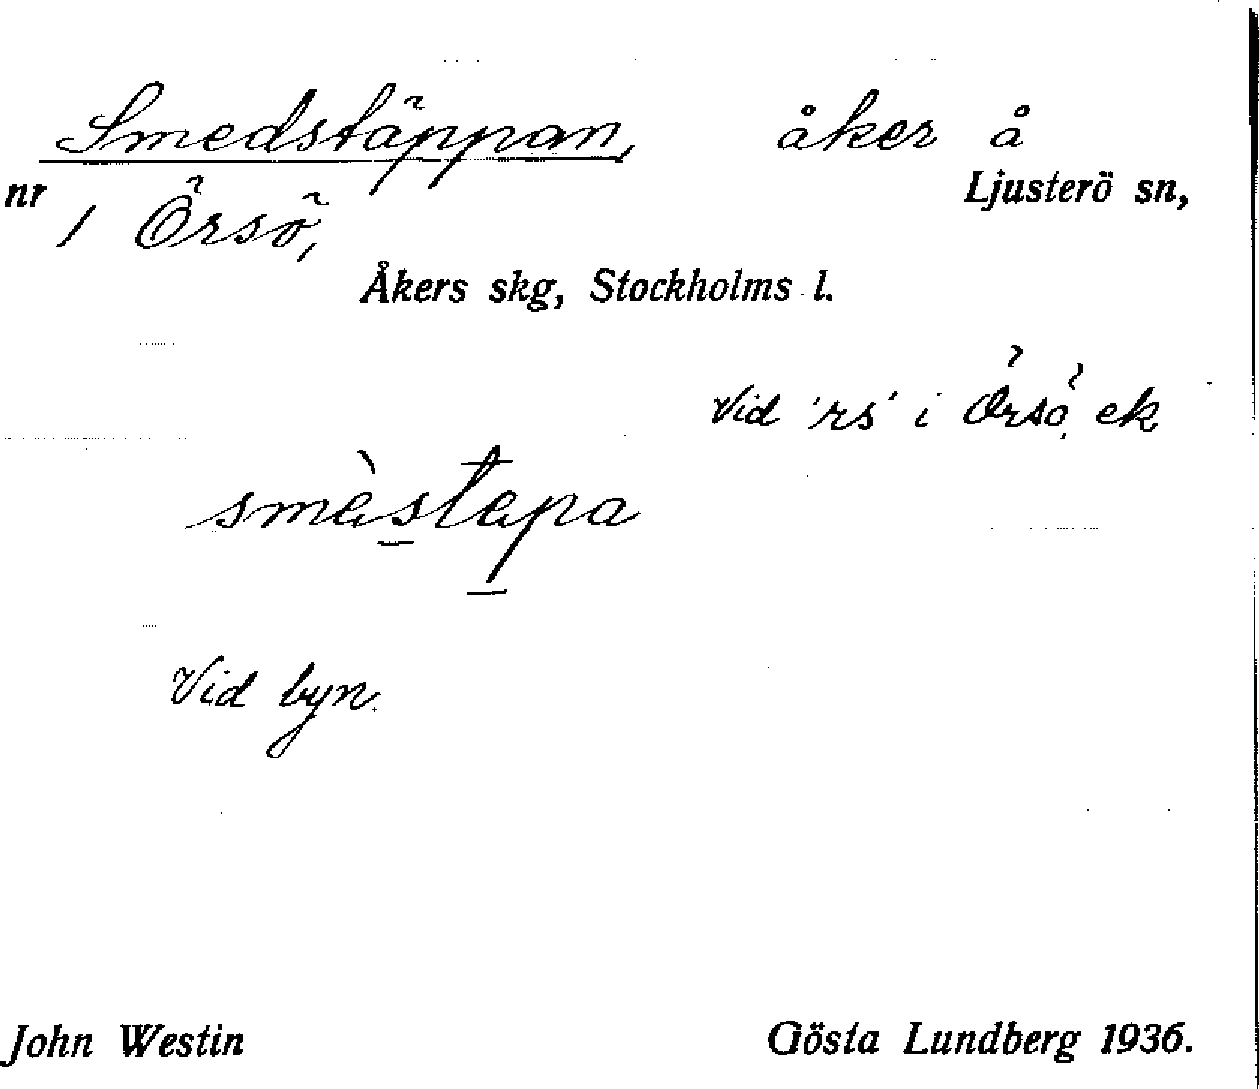 Smedstäppan, åker å
nr 1 Örsö, Ljusterö sn,
Åkers skg, Stockholms l.
Vid 'rs' i Örsö ek
smὲstepa
Vid byn.
John Westin Gösta Lundberg 1936.